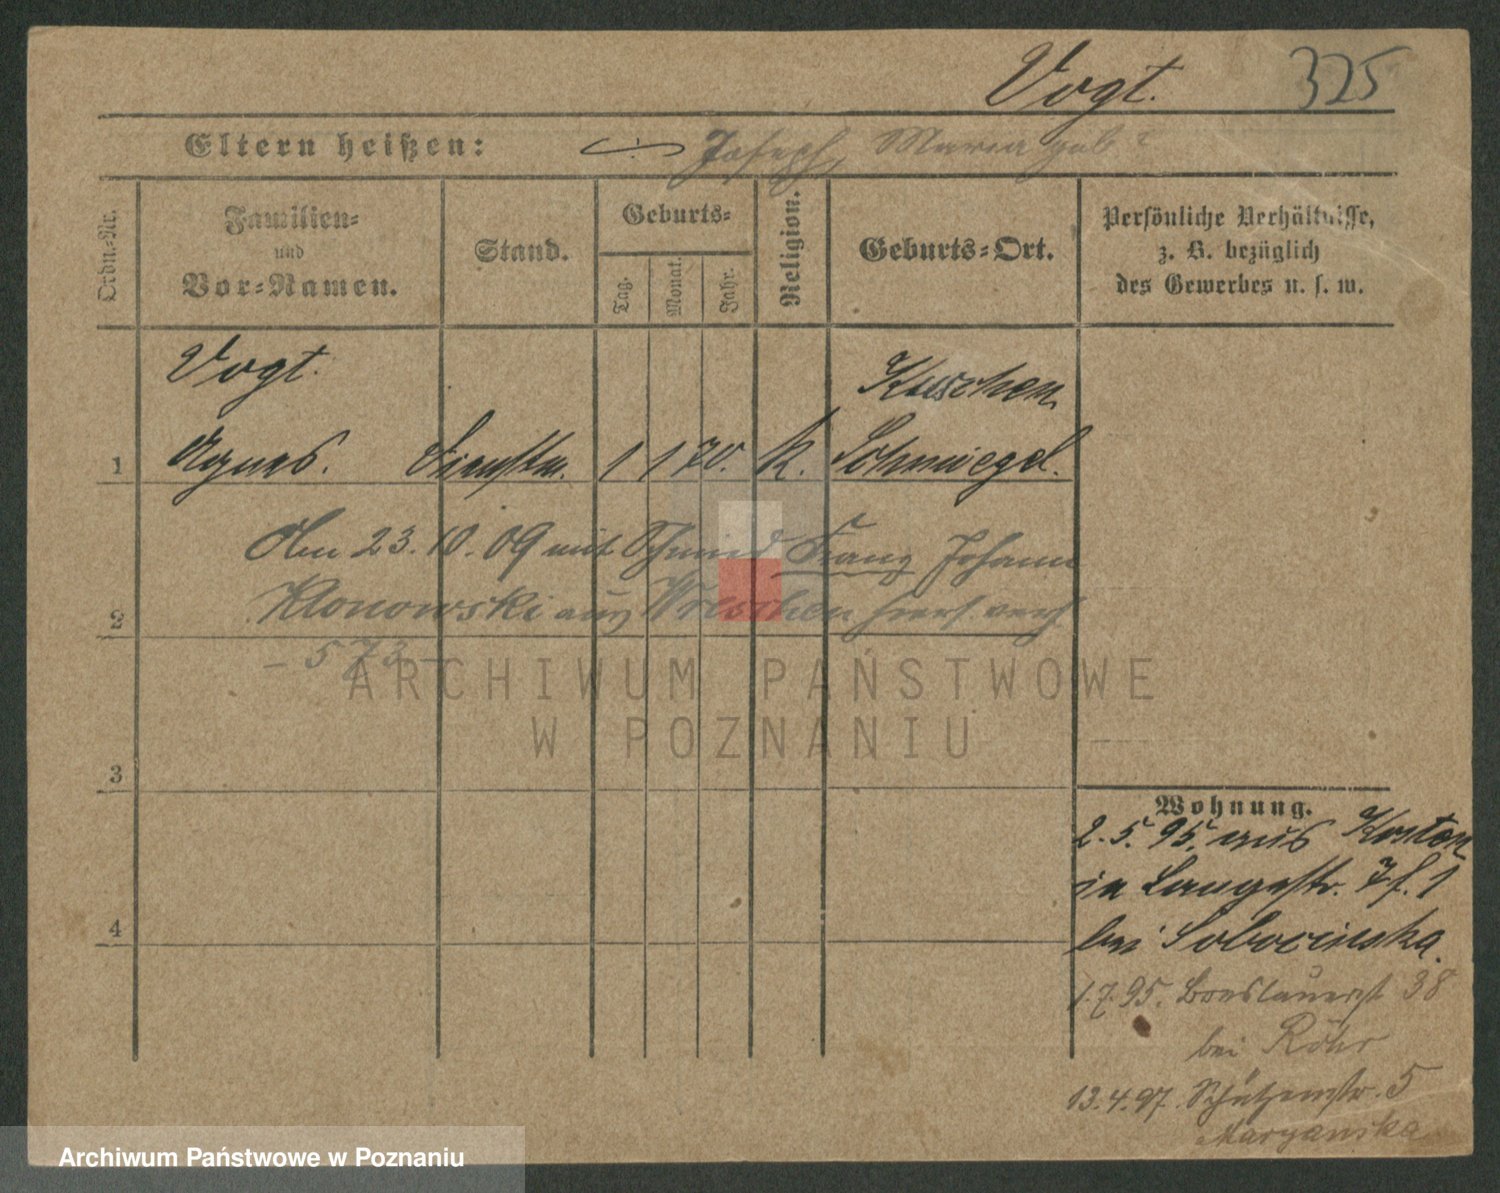 Vogt. 325
Eltern heißen: Joseph, Maria geb?
Ordn.-Nr.
Familien-
und
Vor-Namen.
Stand.
Geburts-
Tag.
Monat.
Jahr.
Religion.
Geburts-Ort.
Persönliche Verhältnisse,
z. B. bezüglich
des Gewerbes u. s. w.
Vogt. Kuschen
1 Agnes. Dienstm. 1 1 70. k. Schmiegel.
Am 23.10.09 mit Schmied Franz Johann
2 Klonowski aus Wreschen hiers. verh
- 573 -
3
4
Wohnung.
2.5.95. aus Kosten
in Langestr. 7 f. 1
bei Sobocinska.
1.7.95. Breslauerst 38
bei Röhr
13.4.97. Schützenstr. 5
Maryanska
ARCHIWUM PAŃSTWOWE
W POZNANIU
Archiwum Państwowe w Poznaniu